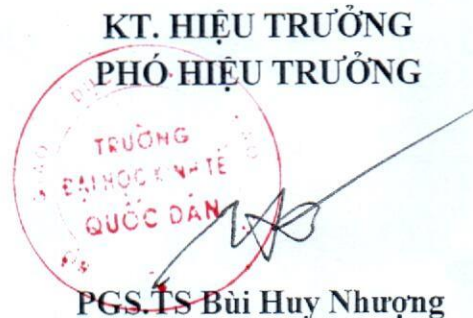 KT. HIỆU TRƯỞNG
PHÓ HIỆU TRƯỞNG
TRƯỜNG
ĐẠI HỌC KINH TẾ
QUỐC DÂN
PGS.TS Bùi Huy Nhượng